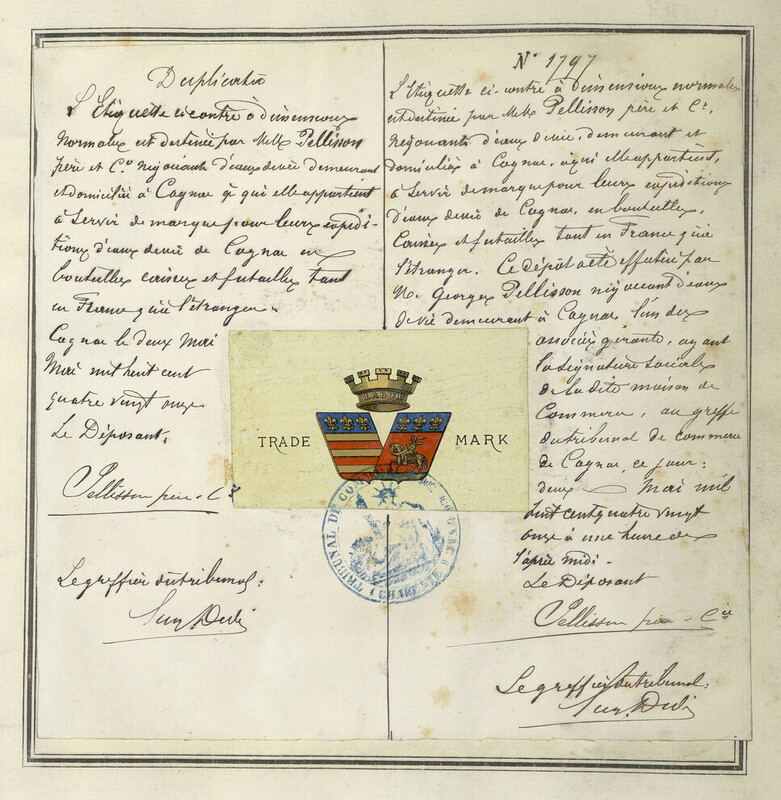 Duplicata
L'Etiquette ci contre à dimensions
normales est destinée par MM. Pellisson
père et Co négociants d'eaux de vie demeurant
et domiciliés à Cognac à qui elle appartient
à servir de marque pour leurs expédi-
tions d'eaux de vie de Cognac en
bouteilles caisses et futailles tant
en France qu'à l'étranger.
Cognac le deux Mai
Mai mil huit cent
quatre vingt onze
Le Déposant:
Pellisson père & Cie
Le greffier du tribunal:
N° 1797
L'Etiquette ci-contre à dimensions normales
est destinée par MM. Pellisson père et Cie,
négociants d'eaux de vie, demeurant et
domiciliés à Cognac, à qui elle appartient,
à servir de marque pour leurs expéditions
d'eaux de vie de Cognac, en bouteilles,
caisses et futailles tant en France qu'à
l'étranger. Ce dépôt a été effectué par
M. Georges Pellisson négociant d'eaux
de vie demeurant à Cognac l'un des
associés gérants, ayant
la signature sociale
de la dite maison de
Commerce, au greffe
du tribunal de commerce
de Cognac, ce jour:
deux Mai mil
huit cent quatre vingt
onze à une heure de
l'après midi.
Le Déposant
Pellisson père & Cie
Le greffier du tribunal:
LABOR
TRADE MARK
TRIBUNAL DE COMMERCE DE COGNAC
(CHARENTE)